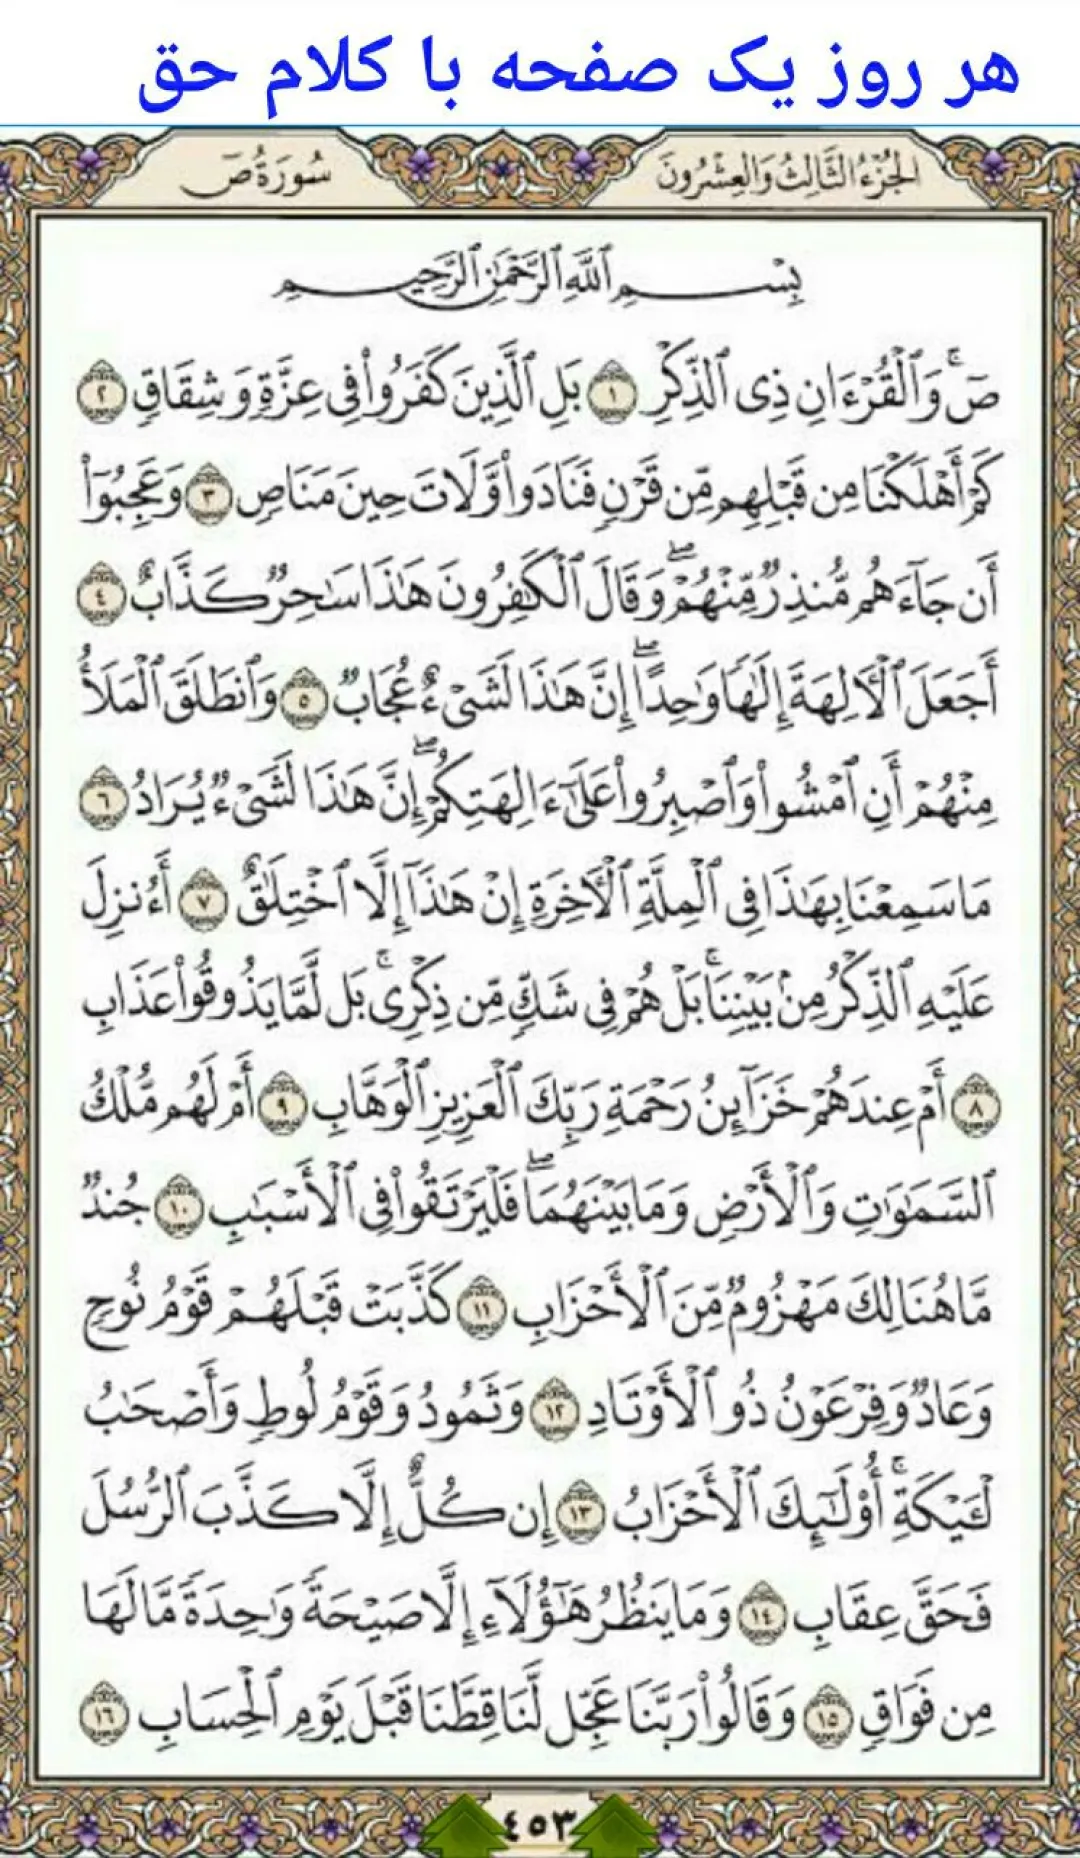 هر روز یک صفحه با کلام حق
الجُزْءُ الثَّالِثُ وَالعِشْرُونَ
سُورَةُ صٓ
بِسْمِ ٱللَّهِ ٱلرَّحْمَٰنِ ٱلرَّحِيمِ
صٓ ۚ وَٱلْقُرْءَانِ ذِى ٱلذِّكْرِ ١ بَلِ ٱلَّذِينَ كَفَرُوا۟ فِى عِزَّةٍ وَشِقَاقٍ ٢
كَمْ أَهْلَكْنَا مِن قَبْلِهِم مِّن قَرْنٍ فَنَادَوا۟ وَّلَاتَ حِينَ مَنَاصٍ ٣ وَعَجِبُوٓا۟
أَن جَآءَهُم مُّنذِرٌ مِّنْهُمْ ۖ وَقَالَ ٱلْكَٰفِرُونَ هَٰذَا سَٰحِرٌ كَذَّابٌ ٤
أَجَعَلَ ٱلْـَٔالِهَةَ إِلَٰهًا وَٰحِدًا ۖ إِنَّ هَٰذَا لَشَىْءٌ عُجَابٌ ٥ وَٱنطَلَقَ ٱلْمَلَأُ
مِنْهُمْ أَنِ ٱمْشُوا۟ وَٱصْبِرُوا۟ عَلَىٰٓ ءَالِهَتِكُمْ ۖ إِنَّ هَٰذَا لَشَىْءٌ يُرَادُ ٦
مَا سَمِعْنَا بِهَٰذَا فِى ٱلْمِلَّةِ ٱلْـَٔاخِرَةِ إِنْ هَٰذَآ إِلَّا ٱخْتِلَٰقٌ ٧ أَءُنزِلَ
عَلَيْهِ ٱلذِّكْرُ مِنۢ بَيْنِنَا ۚ بَلْ هُمْ فِى شَكٍّ مِّن ذِكْرِى ۚ بَل لَّمَّا يَذُوقُوا۟ عَذَابِ
٨ أَمْ عِندَهُمْ خَزَآئِنُ رَحْمَةِ رَبِّكَ ٱلْعَزِيزِ ٱلْوَهَّابِ ٩ أَمْ لَهُم مُّلْكُ
ٱلسَّمَٰوَٰتِ وَٱلْأَرْضِ وَمَا بَيْنَهُمَا ۖ فَلْيَرْتَقُوا۟ فِى ٱلْأَسْبَٰبِ ١٠ جُندٌ
مَّا هُنَالِكَ مَهْزُومٌ مِّنَ ٱلْأَحْزَابِ ١١ كَذَّبَتْ قَبْلَهُمْ قَوْمُ نُوحٍ
وَعَادٌ وَفِرْعَوْنُ ذُو ٱلْأَوْتَادِ ١٢ وَثَمُودُ وَقَوْمُ لُوطٍ وَأَصْحَٰبُ
لْـَٔيْكَةِ ۚ أُو۟لَٰٓئِكَ ٱلْأَحْزَابُ ١٣ إِن كُلٌّ إِلَّا كَذَّبَ ٱلرُّسُلَ
فَحَقَّ عِقَابِ ١٤ وَمَا يَنظُرُ هَٰٓؤُلَآءِ إِلَّا صَيْحَةً وَٰحِدَةً مَّا لَهَا
مِن فَوَاقٍ ١٥ وَقَالُوا۟ رَبَّنَا عَجِّل لَّنَا قِطَّنَا قَبْلَ يَوْمِ ٱلْحِسَابِ ١٦
٤٥٣